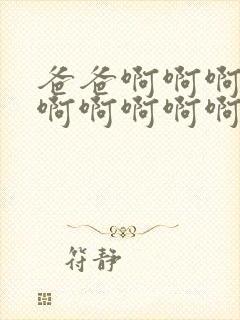 爸爸啊啊啊
啊啊啊啊啊
符静